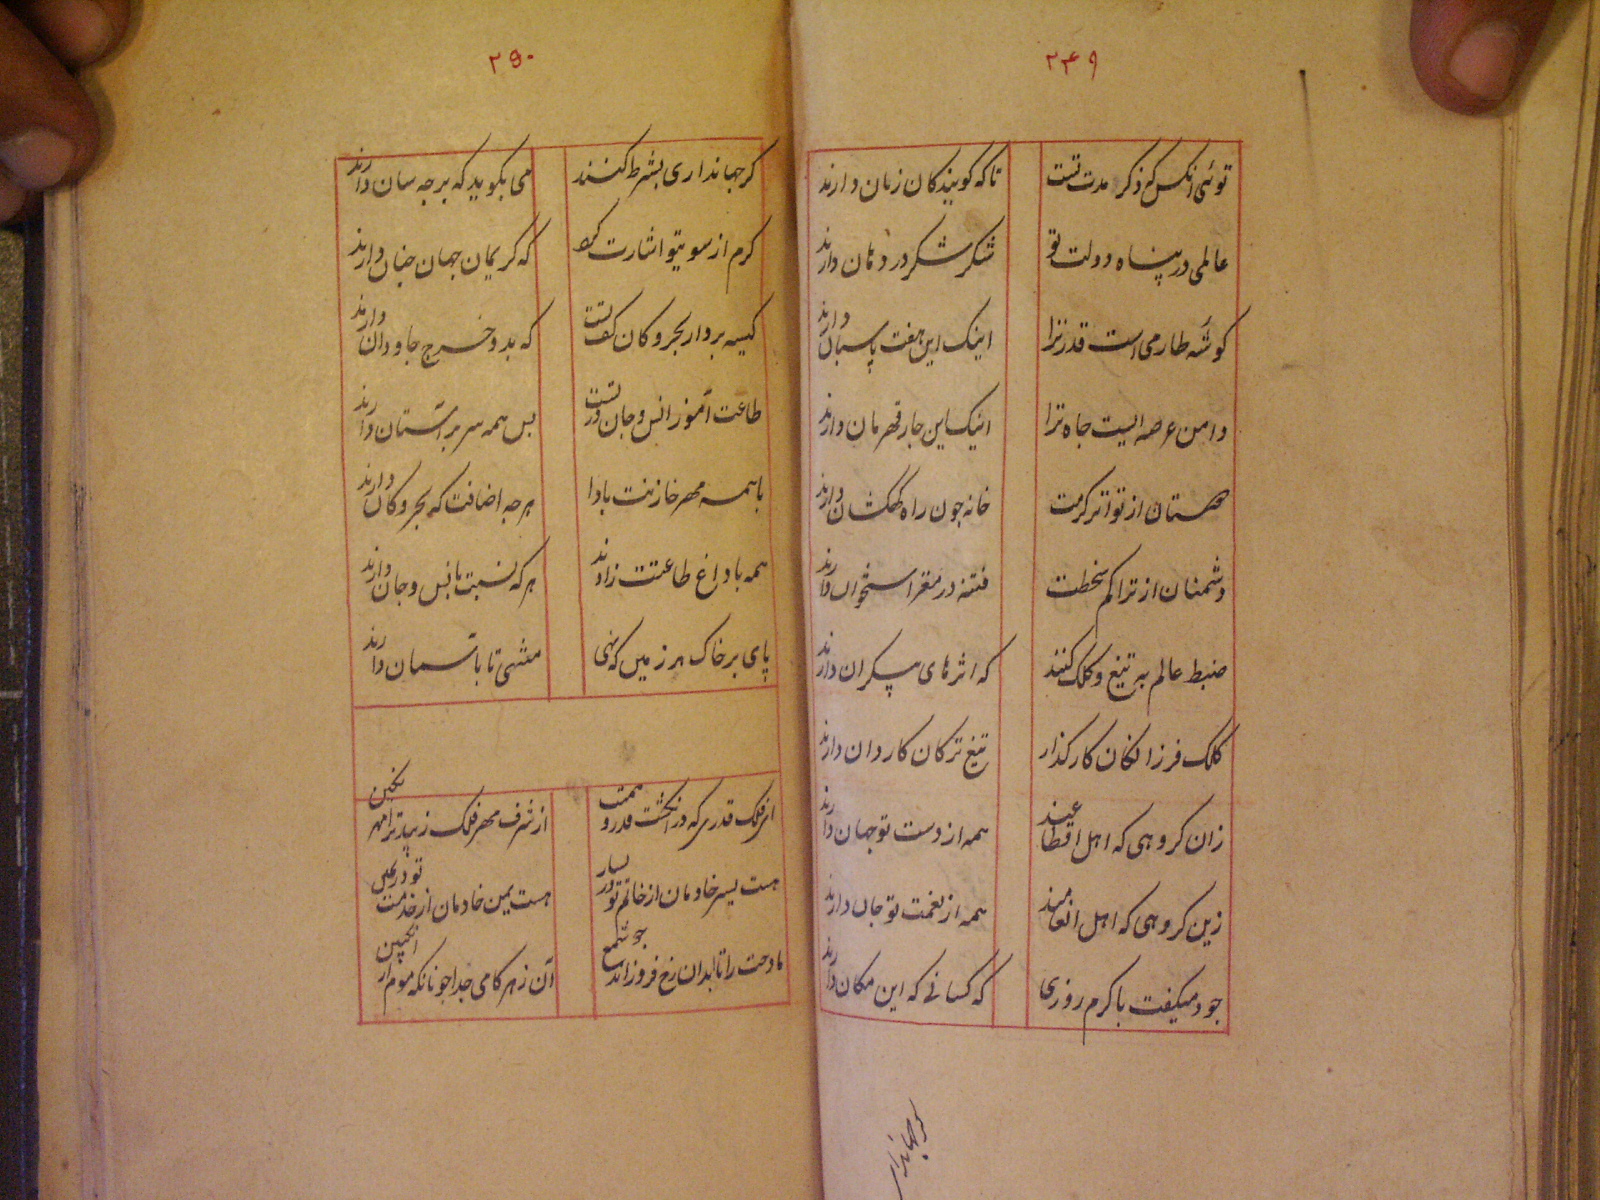 ۲۴۹
توئی آنکس کم ذکر مدت تست تا که گویندکان زبان دارند
عالمی در پناه دولت تو شکر شکر در دهان دارند
کوشه طارمی است قدر ترا اینک این هفت پاسبان دارند
دامن عرصه ایست جاه ترا اینک این چار قهرمان دارند
دوستان از تواتر کرمت خانه چون راه کهکشان دارند
دشمنان از تراکم سخطت فتنه در مغز استخوان دارند
ضبط عالم به تیغ و کلک کنند که اثرهای بیکران دارند
کلک فرزانکان کارکذار تیغ ترکان کاردان دارند
زان کروهی که اهل اقطاعیند همه از دست تو جهان دارند
زین کروهی که اهل انعامند همه از نعمت تو جان دارند
جود میکفت با کرم روزی که کسانی که این مکان دارند
کر جهاندار
۲۵۰
کر جهانداری بشرط کنند می بکوید که بر چه سان دارند
کرم از سوی تو اشارت کرد که کریمان جهان چنان دارند
کیسه بردار بحر و کان کف تست که بدو خرج جاودان دارند
طاعت آموز انس و جان در تست بس همه سر بر آستان دارند
با همه مهر خازنت بادا هر چه اضافت که بحر و کان دارند
همه با داغ طاعتت زادند هر که نسبت بانس و جان دارند
پای بر خاک هر زمین که نهی منتی تا بآسمان دارند
ای فلک قدری که در انکشت قدر و همتت از شرف مهر فلک زیبد ترا مهر نکین
هست یسر خادمان از خاتم تو در یسار هست یمن خادمان از خدمت تو در یمین
مادحت را تا ابدان رخ فروزاند چو شمع آن زهر کامی جدا چونانکه موم از انکبین